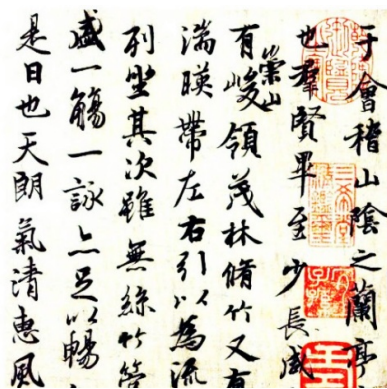 于會稽山陰之蘭亭
也羣賢畢至少長咸
有崇山峻領茂林脩竹又有
湍暎帶左右引以為流
列坐其次雖無絲竹管
盛一觴一詠亦足以暢
是日也天朗氣清惠風